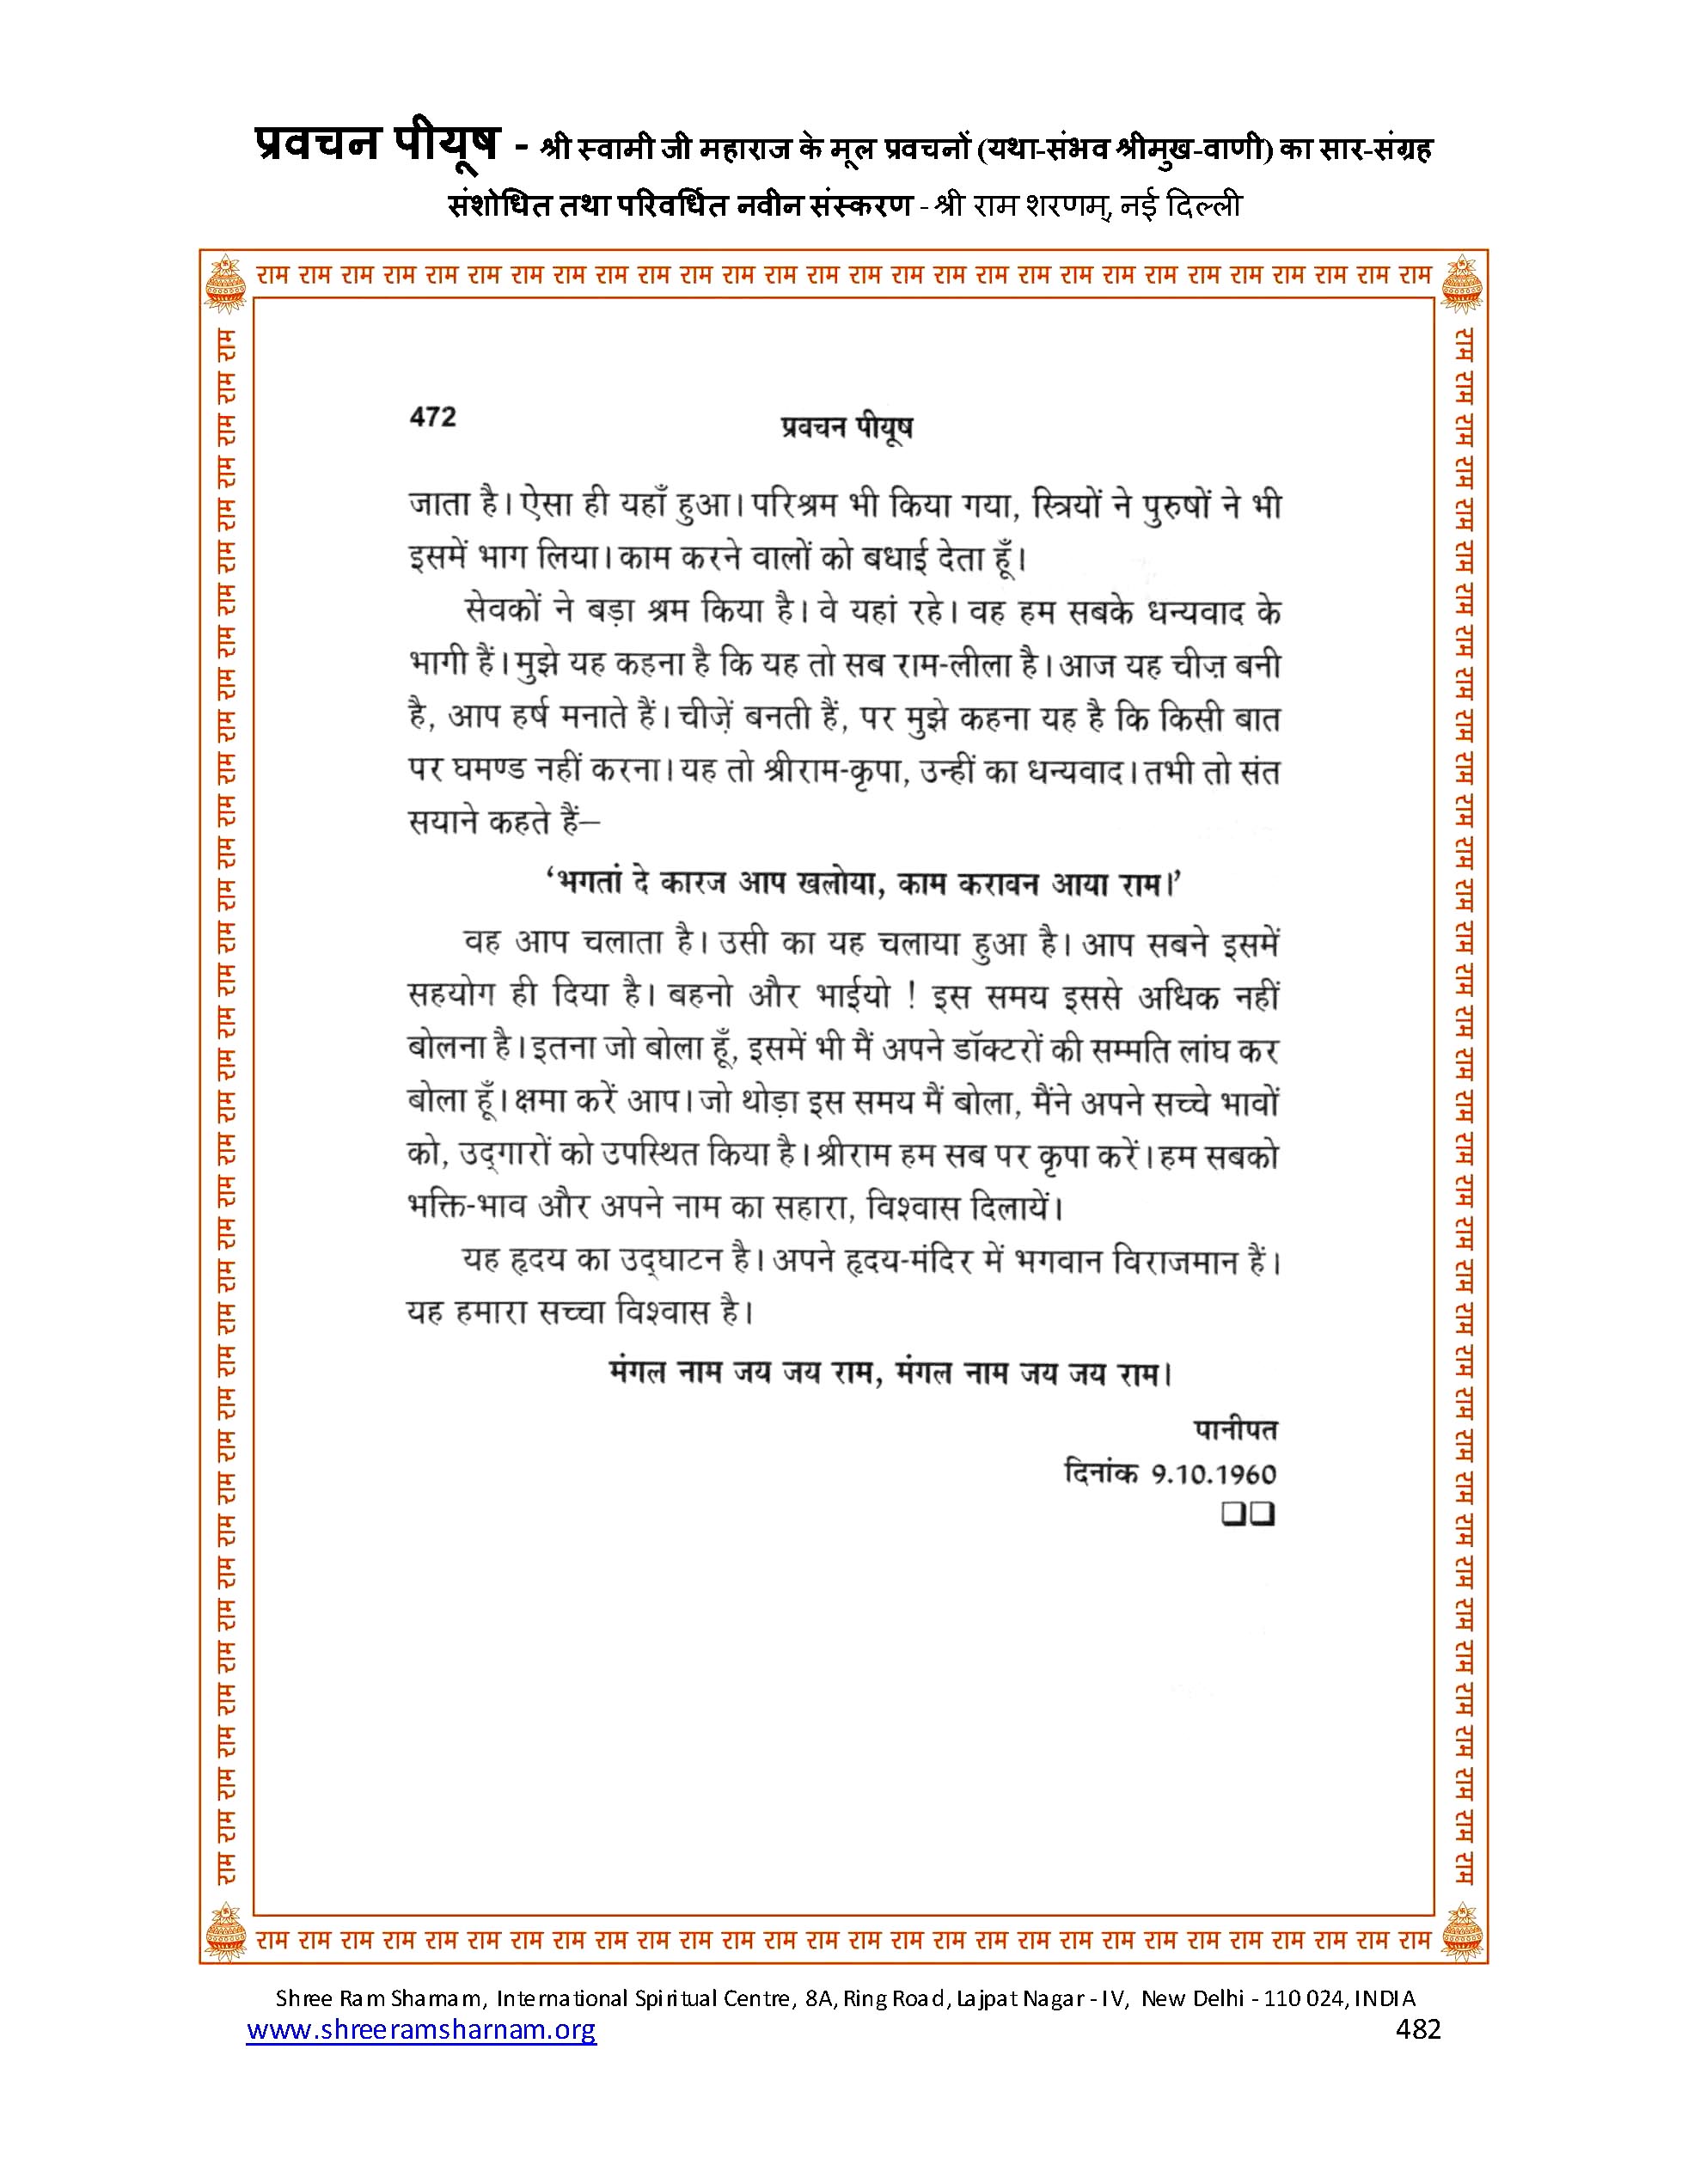 प्रवचन पीयूष - श्री स्वामी जी महाराज के मूल प्रवचनों (यथा-संभव श्रीमुख-वाणी) का सार-संग्रह
संशोधित तथा परिवर्धित नवीन संस्करण - श्री राम शरणम्, नई दिल्ली
राम राम राम राम राम राम राम राम राम राम राम राम राम राम राम राम राम राम राम राम राम राम राम राम राम राम राम राम
472 प्रवचन पीयूष
जाता है। ऐसा ही यहाँ हुआ। परिश्रम भी किया गया, स्त्रियों ने पुरुषों ने भी
इसमें भाग लिया। काम करने वालों को बधाई देता हूँ।
सेवकों ने बड़ा श्रम किया है। वे यहां रहे। वह हम सबके धन्यवाद के
भागी हैं। मुझे यह कहना है कि यह तो सब राम-लीला है। आज यह चीज़ बनी
है, आप हर्ष मनाते हैं। चीज़ें बनती हैं, पर मुझे कहना यह है कि किसी बात
पर घमण्ड नहीं करना। यह तो श्रीराम-कृपा, उन्हीं का धन्यवाद। तभी तो संत
सयाने कहते हैं—
‘भगतां दे कारज आप खलोया, काम करावन आया राम।’
वह आप चलाता है। उसी का यह चलाया हुआ है। आप सबने इसमें
सहयोग ही दिया है। बहनो और भाईयो ! इस समय इससे अधिक नहीं
बोलना है। इतना जो बोला हूँ, इसमें भी मैं अपने डॉक्टरों की सम्मति लांघ कर
बोला हूँ। क्षमा करें आप। जो थोड़ा इस समय मैं बोला, मैंने अपने सच्चे भावों
को, उद्‌गारों को उपस्थित किया है। श्रीराम हम सब पर कृपा करें। हम सबको
भक्ति-भाव और अपने नाम का सहारा, विश्वास दिलायें।
यह हृदय का उद्‌घाटन है। अपने हृदय-मंदिर में भगवान विराजमान हैं।
यह हमारा सच्चा विश्वास है।
मंगल नाम जय जय राम, मंगल नाम जय जय राम।
पानीपत
दिनांक 9.10.1960
❑❑
राम राम राम राम राम राम राम राम राम राम राम राम राम राम राम राम राम राम राम राम राम राम राम राम राम राम राम राम राम राम राम राम राम राम राम राम राम
राम राम राम राम राम राम राम राम राम राम राम राम राम राम राम राम राम राम राम राम राम राम राम राम राम राम राम राम राम राम राम राम राम राम राम राम राम
राम राम राम राम राम राम राम राम राम राम राम राम राम राम राम राम राम राम राम राम राम राम राम राम राम राम राम राम
Shree Ram Sharnam, International Spiritual Centre, 8A, Ring Road, Lajpat Nagar - IV, New Delhi - 110 024, INDIA
www.shreeramsharnam.org 482